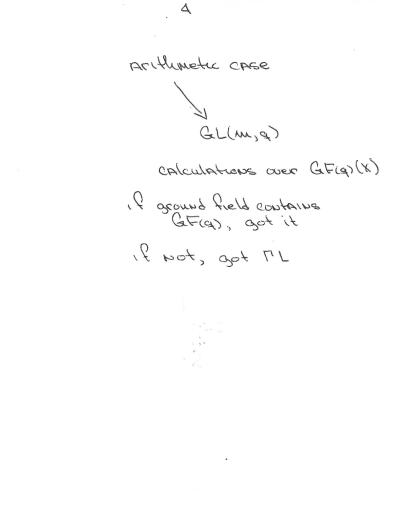 4
Arithmetic case
GL(m,q)
calculations over GF(q)(X)
if ground field contains
GF(q), got it
if not, got ΓL